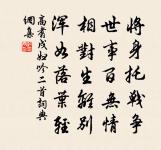 將身托戰爭
世事百無情
相對生離別
渾如落葉輕
高戍婦吟二首詞典
網集